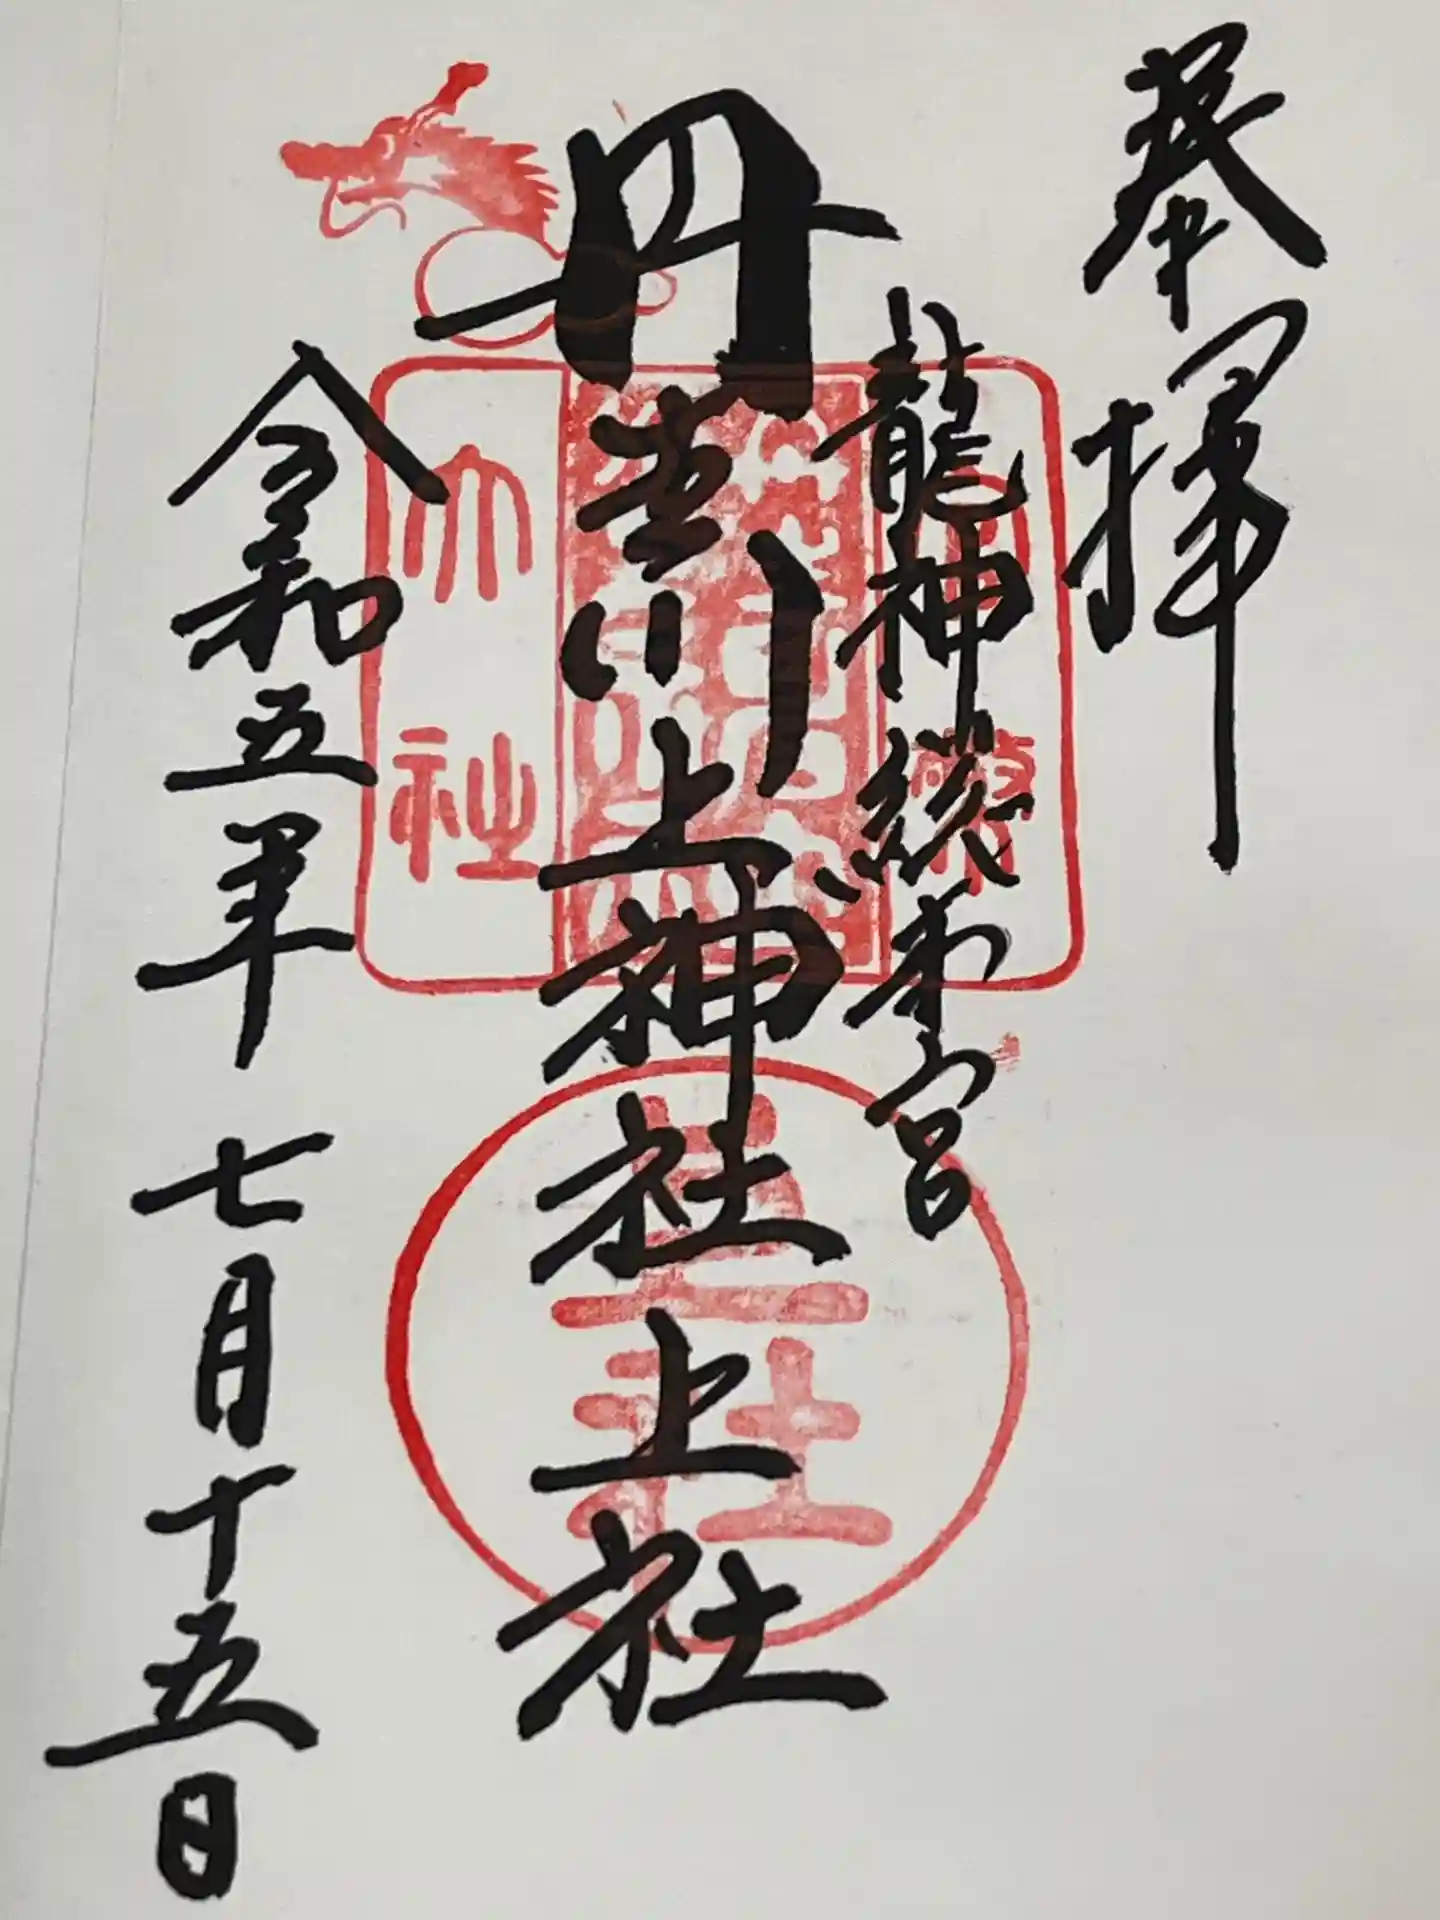 奉拝
龍神総本宮
丹生川上神社上社
令和五年七月十五日
官幣
大社
上社